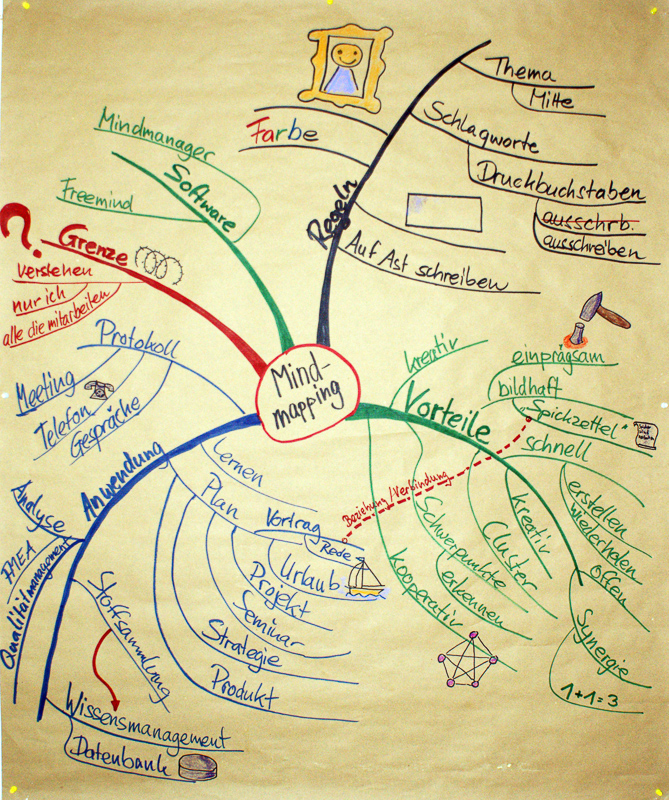 Mind-
mapping
Regeln
Thema
Mitte
Schlagworte
Druckbuchstaben
ausschrb.
ausschreiben
Auf Ast schreiben
Farbe
Software
Mindmanager
Freemind
?
Grenze
verstehen
nur ich
alle die mitarbeiten
Anwendung
Protokoll
Meeting
Telefon
Gespräche
Lernen
Plan
Vortrag
Rede
Urlaub
Projekt
Seminar
Strategie
Produkt
Analyse
FMEA
Qualitätmanagement
Stoffsammlung
Wissensmanagement
Datenbank
Vorteile
kreativ
einprägsam
bildhaft
"Spickzettel"
schnell
erstellen
wiederholen
offen
Synergie
1+1=3
kreativ
Cluster
Schwerpunkte
erkennen
kooperativ
Beziehung/Verbindung